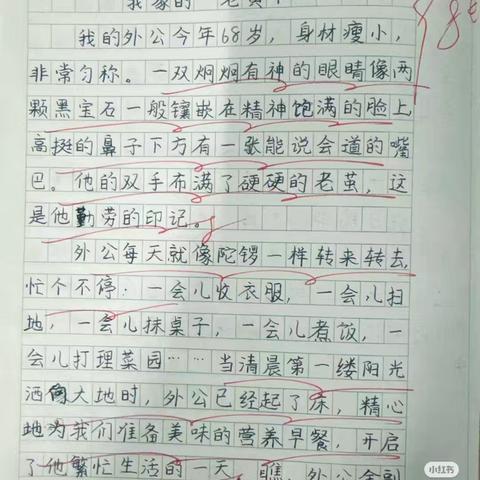 我家的"老黄牛"
我的外公今年68岁，身材瘦小，
非常匀称。一双炯炯有神的眼睛像两
颗黑宝石一般镶嵌在精神饱满的脸上
高挺的鼻子下方有一张能说会道的嘴
巴。他的双手布满了硬硬的老茧，这
是他勤劳的印记。
外公每天就像陀锣一样转来转去，
忙个不停：一会儿收衣服，一会儿扫
地，一会儿抹桌子，一会儿煮饭，一
会儿打理菜园……当清晨第一缕阳光
洒向大地时，外公已经起了床，精心
地为我们准备美味的营养早餐，开启
了他繁忙生活的一天。瞧，外公全副
小红书